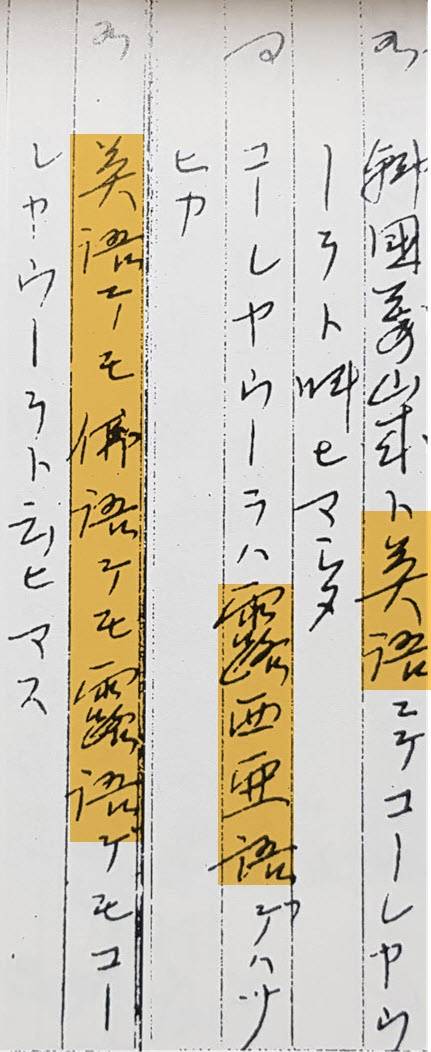 答 韓國萬歳ト英語ニテコーレヤウ
ーラト叫ヒマシタ
問 コーレヤウーラハ露西亜語デハナ
ヒカ
答 英語デモ佛語デモ露語デモコー
レヤウーラト云ヒマス